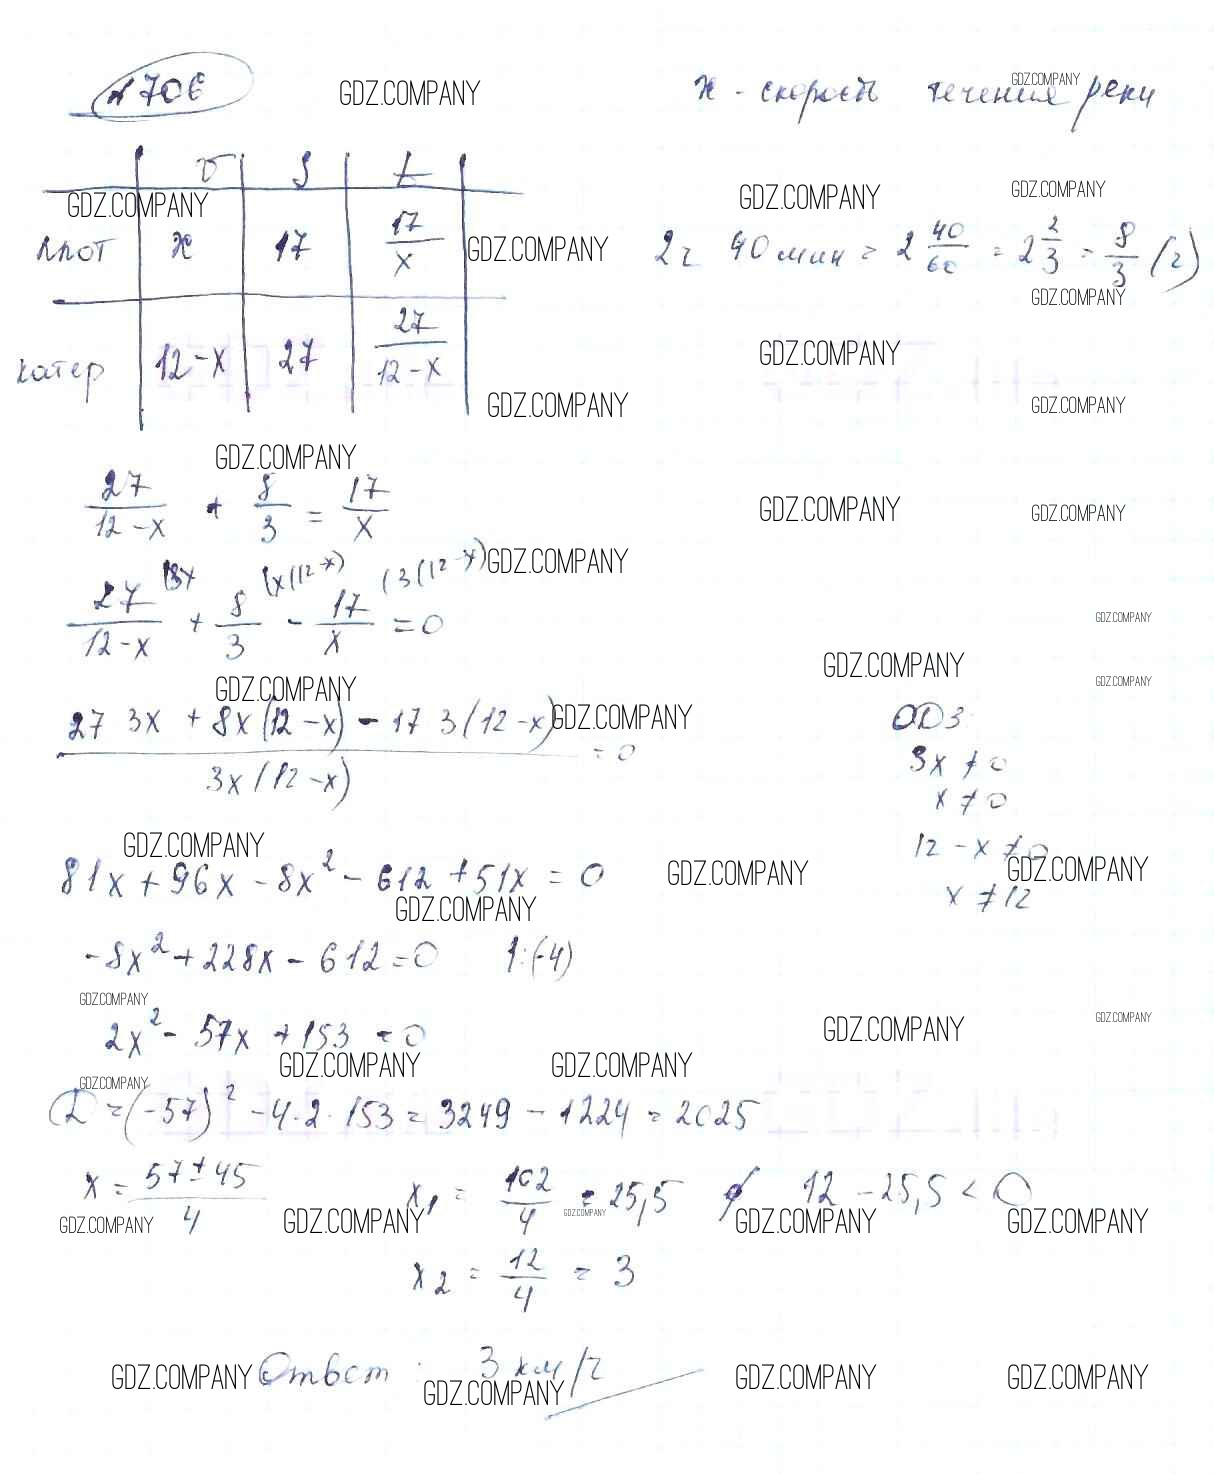 № 706 GDZ.COMPANY x - скорость течения реки GDZ.COMPANY
v S t
GDZ.COMPANY GDZ.COMPANY GDZ.COMPANY
плот x 17 17/x GDZ.COMPANY 2 ч 40 мин = 2 40/60 = 2 2/3 = 8/3 (ч)
GDZ.COMPANY
катер 12-x 27 27/(12-x) GDZ.COMPANY
GDZ.COMPANY GDZ.COMPANY
GDZ.COMPANY
27/(12-x) + 8/3 = 17/x GDZ.COMPANY GDZ.COMPANY
(3x (x(12-x) (3(12-x) GDZ.COMPANY
27/(12-x) + 8/3 - 17/x = 0 GDZ.COMPANY
GDZ.COMPANY
GDZ.COMPANY GDZ.COMPANY
27 3x + 8x(12-x) - 17 3(12-x) GDZ.COMPANY ОДЗ:
3x(12-x) = 0 3x ≠ 0
x ≠ 0
GDZ.COMPANY 12 - x ≠ 0
81x + 96x - 8x² - 612 + 51x = 0 GDZ.COMPANY GDZ.COMPANY
GDZ.COMPANY x ≠ 12
-8x² + 228x - 612 = 0 |:(-4)
GDZ.COMPANY
2x² - 57x + 153 = 0 GDZ.COMPANY GDZ.COMPANY
GDZ.COMPANY GDZ.COMPANY
GDZ.COMPANY
D = (-57)² - 4·2·153 = 3249 - 1224 = 2025
x = (57 ± 45)/4 x₁ = 102/4 = 25,5 ∅ 12 - 25,5 < 0
GDZ.COMPANY GDZ.COMPANY GDZ.COMPANY GDZ.COMPANY GDZ.COMPANY
x₂ = 12/4 = 3
GDZ.COMPANY Ответ: 3 км/ч GDZ.COMPANY GDZ.COMPANY
GDZ.COMPANY